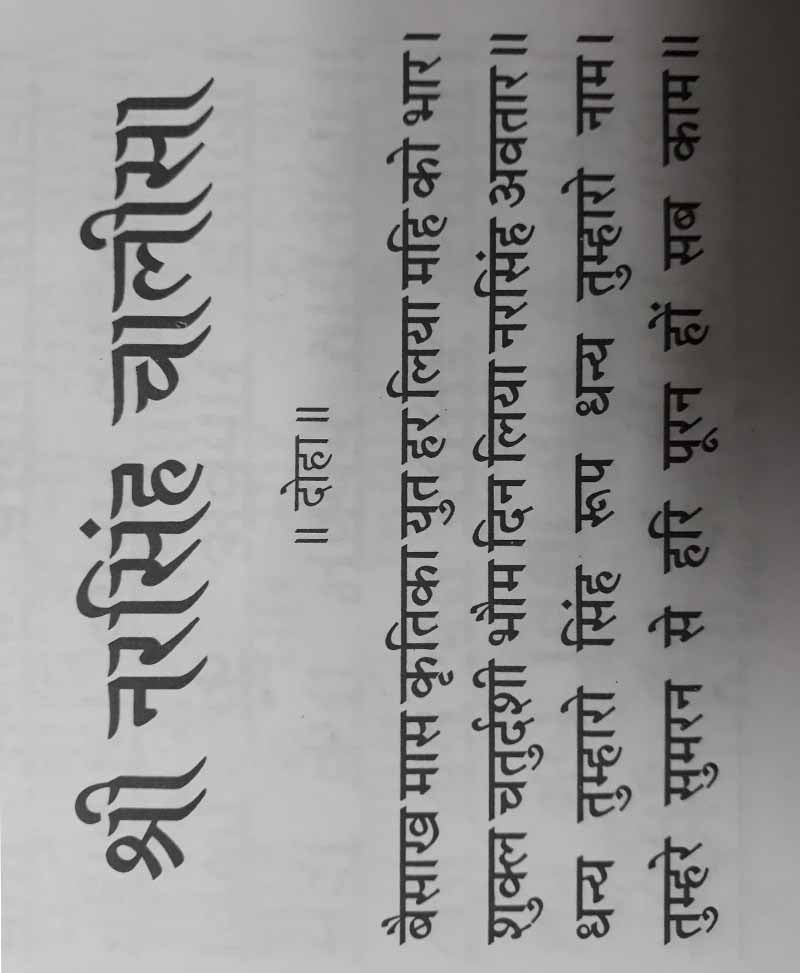 श्री नरसिंह चालीसा
॥ दोहा ॥
बैसाख मास कृतिका युत हर लिया महि को भार।
शुक्ल चतुर्दशी भौम दिन लिया नरसिंह अवतार॥
धन्य तुम्हारो सिंह रूप धन्य तुम्हारो नाम।
तुम्हरे सुमरन से हरि पूरन हों सब काम॥